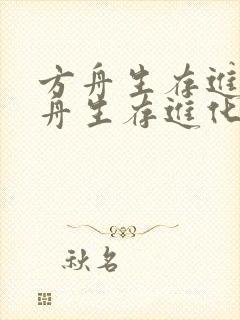 方舟生存進
舟生存進化
秋名